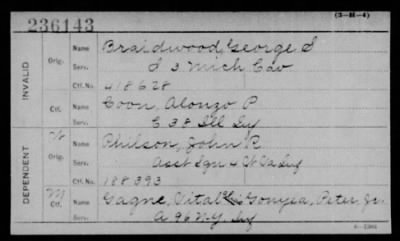 (3-H-4)
236143
INVALID
Orig.
Name Braidwood, George S
Serv. I 3. Mich Cav
Ctf. No. 418628
Ctf.
Name Coon, Alonzo P
Serv. C 38 Ill Inf
DEPENDENT
W
Orig.
Name Philson, John R
Serv. Asst Sgn 4 Inf
Ctf. No. 188393
M
Ctf.
Name Gagne, Vital Gonyea, Peter, Jr.
Serv. A 96 N.Y. Inf